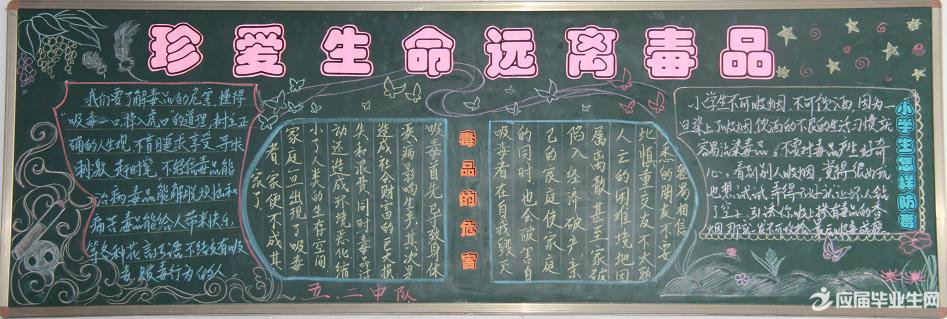 珍爱生命远离毒品
我们要了解毒品的危害,懂得
"吸毒一口,掉入虎口"的道理,树立正
确的人生观,不盲目追求享受,寻求
刺激,赶时髦,不轻信毒品能
治病毒品能解脱烦恼和
痛苦毒品能给人带来快乐
等各种花言巧语不结交有吸
毒、贩毒行为的人。
吸毒首先已致身体
疾病影响生产,其次是
造成社会财富的巨大损
失和浪费,同时毒品活
动还造成环境恶化缩
小了人类的生存空间
家庭一旦出现了吸毒
者,家便不成其
家了
毒品的危害
吸毒者在自我毁灭
的同时,也会破害自
己的家庭,使家庭
陷入经济破产、亲
属离散甚至家破
人亡的困难境地因
此慎重交友不太熟
悉的朋友不要
容易相信
小学生不可吸烟,不可饮酒,因为一
旦染上了吸烟、饮酒的不良的生活习惯,就
容易沾染毒品。不要对毒品产生好奇
小学生怎样防毒
五.二中队
应届毕业生网